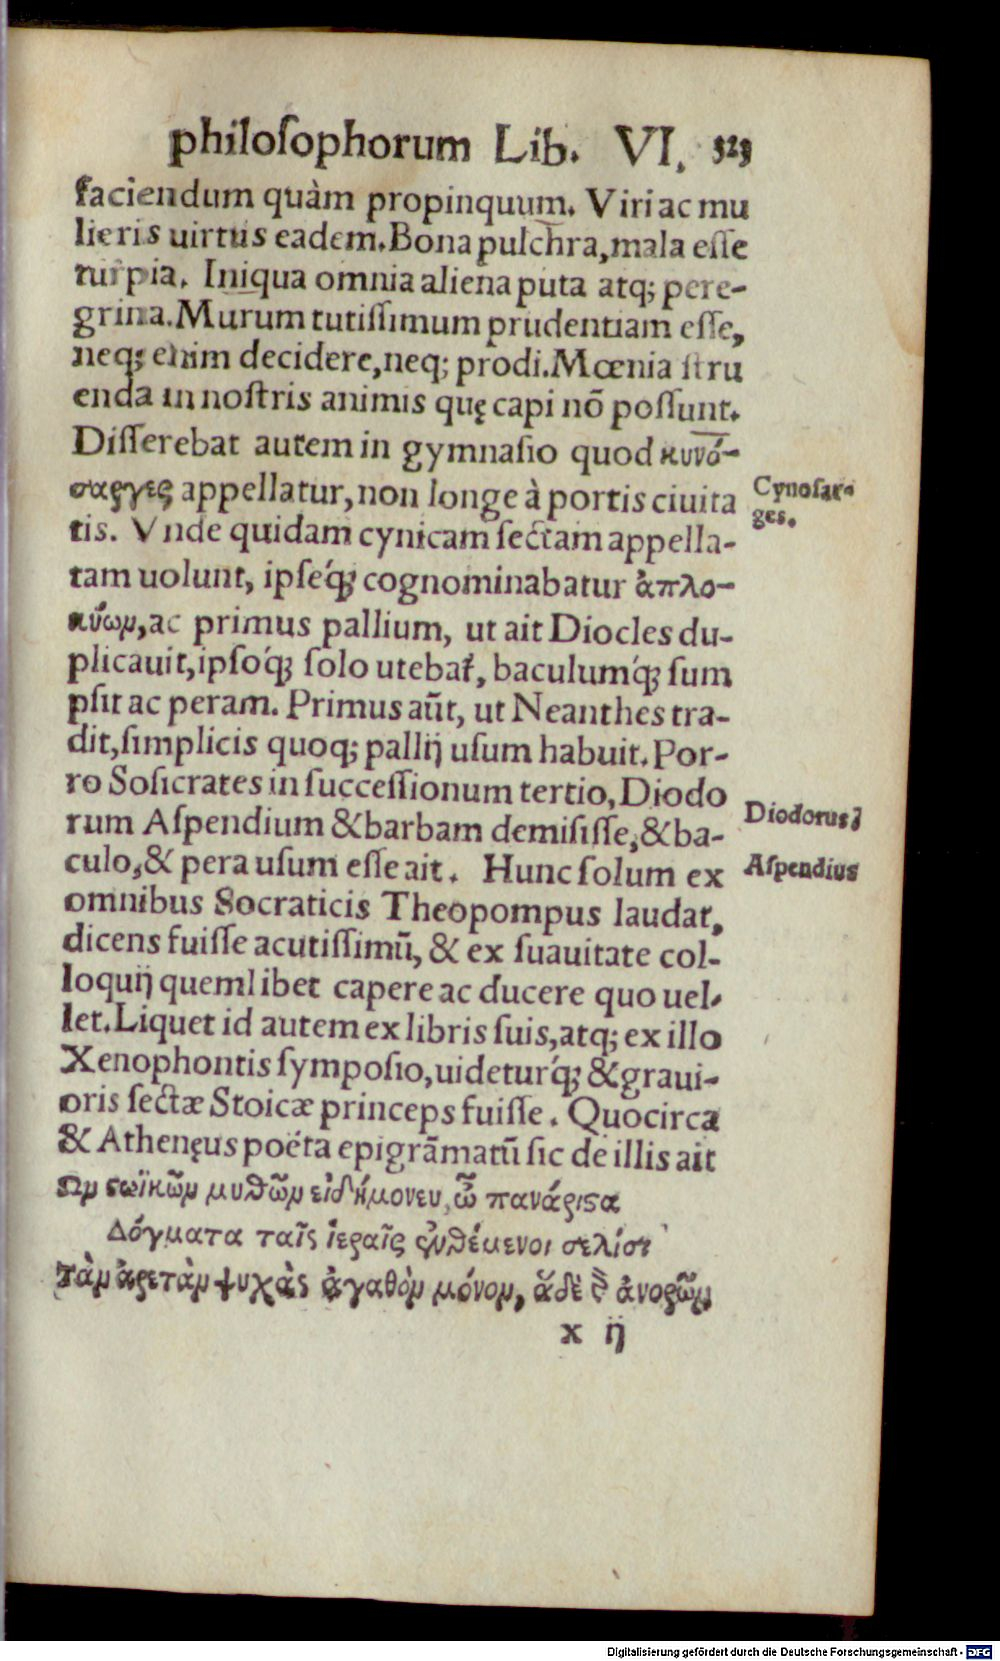 philosophorum Lib. VI. 323
faciendum quàm propinquum. Viri ac mu
lieris uirtus eadem. Bona pulchra, mala esse
turpia. Iniqua omnia aliena puta atq; pere-
grina. Murum tutissimum prudentiam esse,
neq; enim decidere, neq; prodi. Mœnia stru
enda in nostris animis quę capi nõ possunt.
Disserebat autem in gymnasio quod κυνό-
σαργες appellatur, non longe à portis ciuita
Cynosar-
ges.
tis. Vnde quidam cynicam sectam appella-
tam uolunt, ipseq́; cognominabatur ἁπλο-
κύων, ac primus pallium, ut ait Diocles du-
plicauit, ipsoq́; solo utebat̃, baculumq́; sum
psit ac peram. Primus aũt, ut Neanthes tra-
dit, simplicis quoq; pallij usum habuit. Por-
ro Sosicrates in successionum tertio, Diodo
Diodorus
rum Aspendium & barbam demisisse, & ba-
culo, & pera usum esse ait. Hunc solum ex
Aspendius
omnibus Socraticis Theopompus laudat,
dicens fuisse acutissimũ, & ex suauitate col-
loquij quemlibet capere ac ducere quo uel-
let. Liquet id autem ex libris suis, atq; ex illo
Xenophontis symposio, uideturq́; & graui-
oris sectæ Stoicæ princeps fuisse. Quocirca
& Athenęus poéta epigrãmatũ sic de illis ait
Ωμ ϛωϊκῶν μυθῶν εἰδήμονευ, ὦ πανάριϛα
Δόγματα ταῖς ἱεραῖς ἐνθέμενοι σελίσι
Τὰν ἀρετὰν ψυχὰς ἀγαθὸν μόνον, ἅδε ἀνδρῶν
x ij
Digitalisierung gefördert durch die Deutsche Forschungsgemeinschaft - DFG